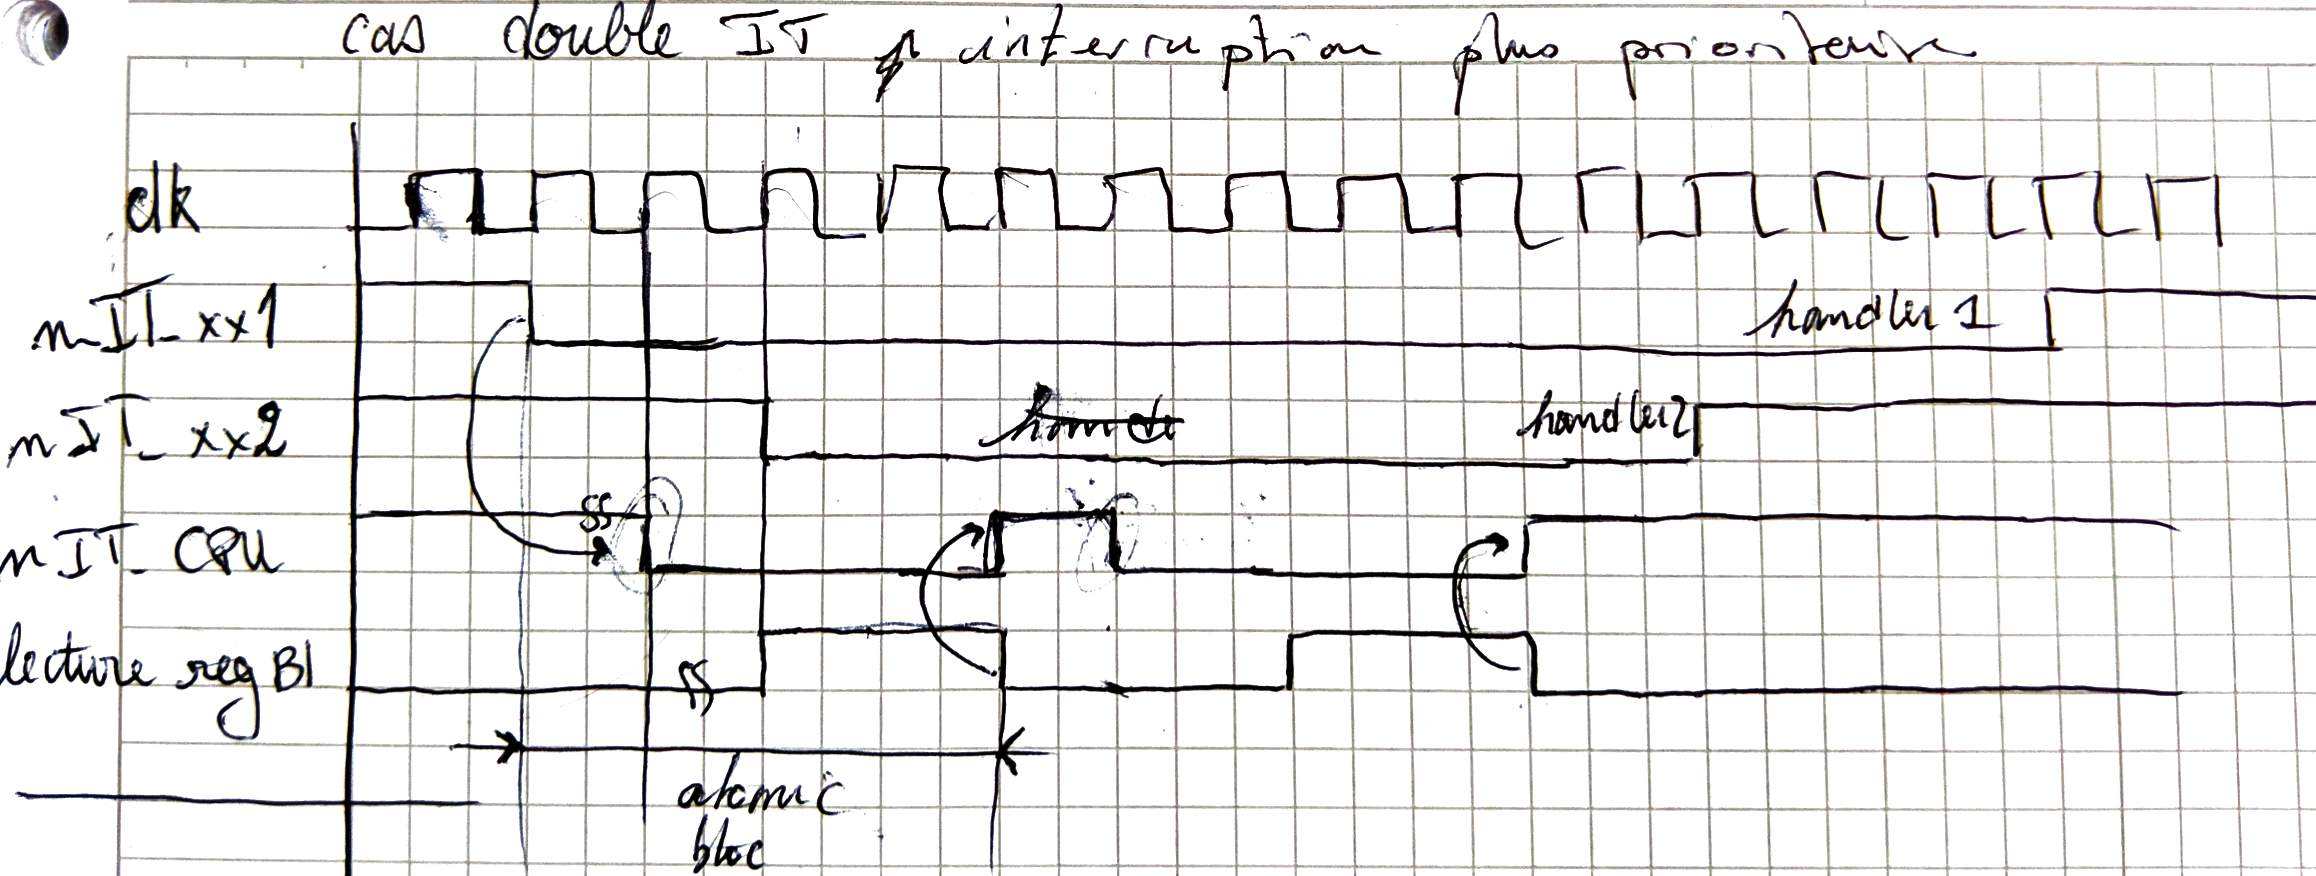 cas double IT interruption plus prioritaire
clk
nIT_xx1
handler 1
nIT_xx2
handler2
nIT_CPU
SS
lecture reg BI
SS
atomic
bloc